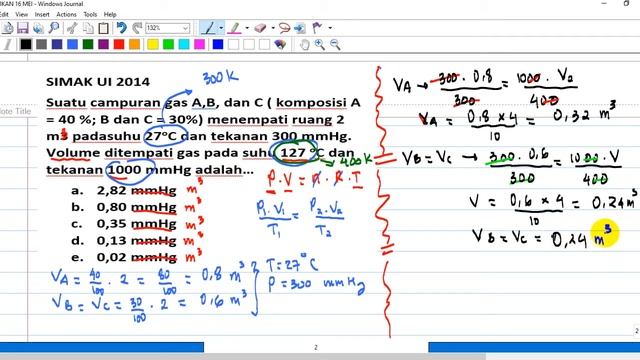 IKAN 16 MEI - Windows Journal
Insert Actions Tools Help
152.8%
Note Title
SIMAK UI 2014
300 K
Suatu campuran gas A,B, dan C ( komposisi A
= 40 %; B dan C = 30%) menempati ruang 2
m3 padasuhu 27°C dan tekanan 300 mmHg.
Volume ditempati gas pada suhu 127 °C dan
400 K
tekanan 1000 mmHg adalah...
a. 2,82 mmHg m³
b. 0,80 mmHg m³
c. 0,35 mmHg m³
d. 0,13 mmHg m³
e. 0,02 mmHg m³
P . V = n . R . T
P₁.V₁ / T₁ = P₂.V₂ / T₂
VA = 40/100 . 2 = 80/100 = 0,8 m³
VB = VC = 30/100 . 2 = 0,6 m³
T = 27°C
P = 300 mmHg
VA → 300 . 0,8 / 300 = 1000 . V₂ / 400
VA = 0,8 x 4 / 10 = 0,32 m³
VB = VC → 300 . 0,6 / 300 = 1000 . V / 400
V = 0,6 x 4 / 10 = 0,24 m³
VB = VC = 0,24 m³
2